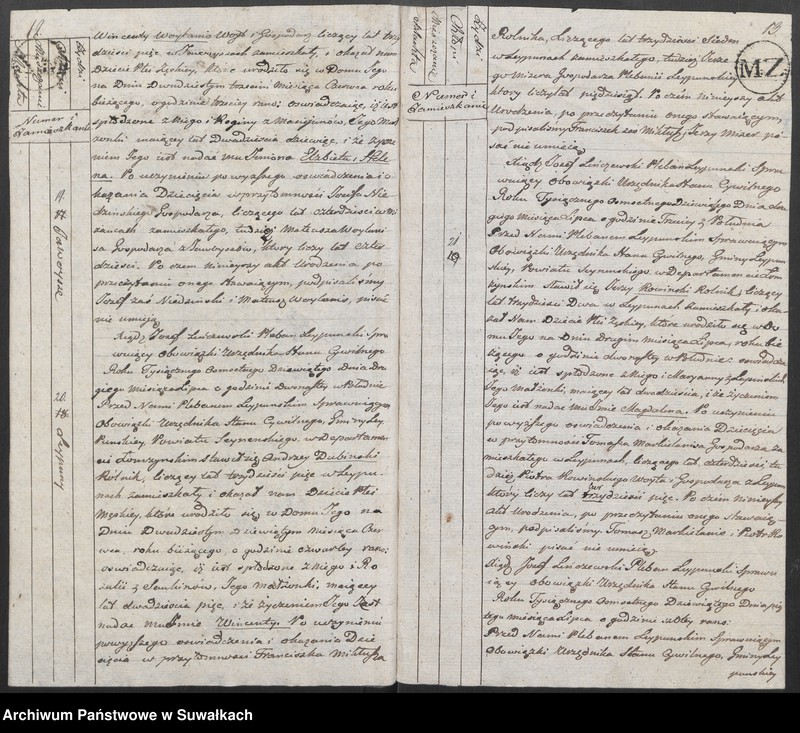 12
Numer i
Zamieszkanie
Wincenty Woytania Woyt i Gospodarz liczący lat trzy
dzieści pięć w zamieszkały, i okazał nam
Dziecie Płci Żęńskiey, które urodziło się w Domu Jego
na Dniu Dwudziestym trzecim Miesiąca Czerwca roku
bieżącego, o godzinie trzeciey rano; oswiadczaiąc, iż iest
spłodzone z Niego i Reginy z Jego Mał
żonki maiącey lat Dwadzieścia dziewięć, i że życze
niem Jego iest nadać mu Imiona Elzbieta, Hele
na. Po uczynieniu powyższego oswiadczenia i o
kazania Dziecięcia w przytomności Jozefa Nie
dzinskiego Gospodarza, liczącego lat czterdzieści w
zamieszkałego, tudzież Mateusza Woytani
sa Gospodarza z który liczy lat czter
dzieści. Po czem ninieyszy akt Urodzenia po
przeczytaniu onego stawaiącym, podpisaliśmy
Jozef zaś Niedzinski i Mateusz Woytanis, pisać
nie umieią
Xiądz Jozef Linczewski Pleban Leypunski Spra
wuiący Obowiązki Urzędnika Stanu Cywilnego
Roku Tysiącznego Osmsetnego Dziewiątego Dnia Dru
giego Miesiąca Lipca o godzini Dwunastey w Południe
Przed Nami Plebanem Leypunskim Sprawuiącym
Obowiązki Urzędnika Stanu Cywilnego, Gminy Ley
Punskiey Powiatu Seynenskiego, w Departamen
cie Łomzynskim stawił się Andrzey Dubinski
Rolnik, liczący lat trzydzieści pięć w Leypu
nach zamieszkały i okazał nam Dziecie Płci
Męskiey, które urodziło się w Domu Jego na
Dniu Dwudziestym dziewiątym Miesiąca Czer
wca, roku bieżącego, o godzinie czwartey rano;
oswiadczaiąc, iż iest spłodzone z Niego i Ro
zalii z Jego małżonki, maiącey
lat dwadzieścia pięć, i że życzeniem Jego Jest
nadać mu Imie Wincenty. Po uczynieniu
powyższego oswiadczenia i okazania Dzie
cięcia w przytomności Franciszka Militusza
13
MZ
Numer i
Zamieszkanie
Rolnika, Liczącego lat trzydzieści Siedem
w Leypunach zamieszkałego, tudzież Jerze
go Mizera Gospodarza Plebanii Leypunskiey
który liczy lat pięćdziesiąt. Po czém ninieyszy akt
Urodzenia, po przeczytaniu onego stawaiącym,
podpisaliśmy Franciszek zas Militusz, Jerzy Mizer pi
sać nie umieią
Xiądz Jozef Linczewski Pleban Leypunski Spra
wuiący obowiązki Urzędnika Stanu Cywilnego
Roku Tysiącznego Osmsetnego Dziewiątego Dnia dru
giego Miesiąca Lipca o godzinie Trzeciey z Południa
Przed Nami Plebanem Leypunskim Sprawuiącym
Obowiązki Urzędnika Stanu Cywilnego, Gminy Leypun
skiey, Powiatu Seynenskiego w Departamencie Łom
zynskim Stawił się Jerzy Rowinski Rolnik, liczący
lat trzydzieści Dwa w Leypunach zamieszkały i oka
zał Nam Dziecie Płci Zęskiey, które urodziło się w Do
mu Jego na Dniu Drugim miesiąca Lipca, roku bie
żącego o godzinie dwunastey w Południe oswiadcza
iąc, iż iest spłodzone z Niego i Maryanny z
Jego Małżonki, maiącey lat dwadzieścia, i że życzeniem
Jego iest nadać mu Imie Magdalena. Po uczynieniu
powyższego oswiadczenia i okazania Dziecięcia
w przytomności Tomasza Markielanisa Gospodarza za
mieszkałego w Leypunach, liczącego lat czterdzieści tu
dzież Piotra Rowinskiego Woyta i Gospodarza z Leypun
który liczy lat trzydzieści pięć. Po czém ninieyszy
akt Urodzenia, po przeczytaniu onego stawaią
cym, podpisalismy. Tomasz Markielanis i Piotr Ro
winski pisać nie umieią
Xiądz Jozef Linczewski Pleban Leypunski Spraw
uiący obowiązki Urzędnika Stanu Cywilnego
Roku Tysiącznego Osmsetnego Dziewiątego Dnia pią
tego miesiąca Lipca o godzinie szostey rano:
Przed Nami Plebanem Leypunskim Sprawuiącym
obowiązki Urzędnika Stanu Cywilnego, Gminy Ley
punskiey
Archiwum Państwowe w Suwałkach